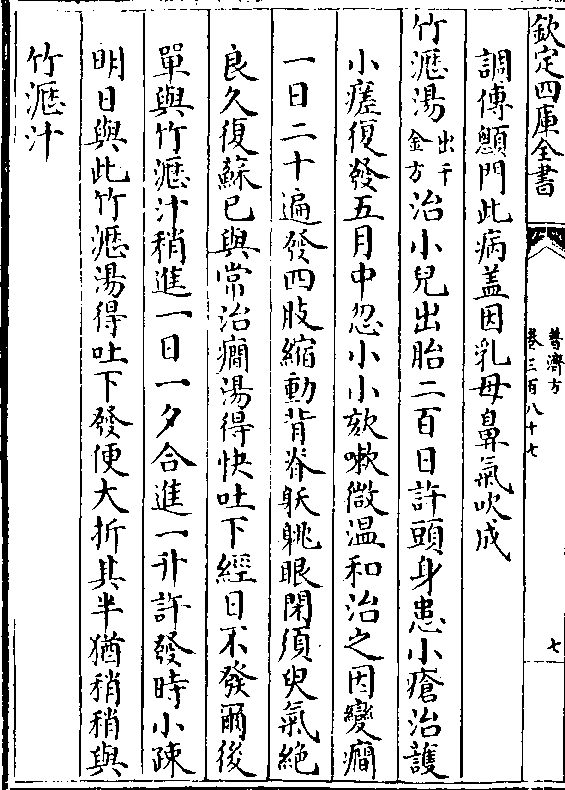 欽定四庫全書
普濟方
卷三百八十七
七
調傅顖門此病蓋因乳母鼻氣吹成
竹瀝湯出千金方治小兒出胎二百日許頭身患小瘡治護
小瘥復發五月中忽小小欬嗽微温和治之因變癎
一日二十遍發四肢縮動背脊䠶䠷眼閉須臾氣絶
良久復蘇已與常治癎湯得快吐下經日不發爾後
單與竹瀝汁稍進一日一夕合進一升許發時小疎
明日與此竹瀝湯得吐下發便大折其半猶稍稍與
竹瀝汁